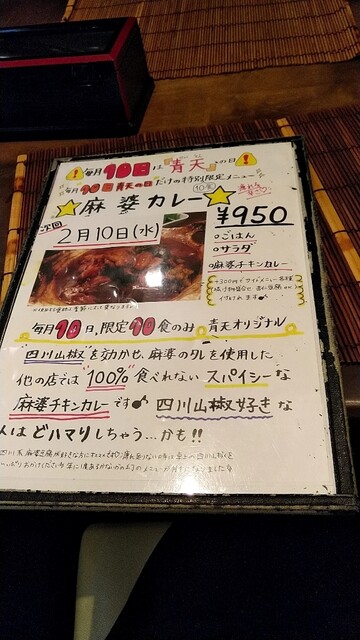 毎月10日は青天の日
毎月10日青天の日だけの特別限定メニュー
麻婆カレー
10食
¥950
次回
2月10日(水)
○ごはん
○サラダ
○麻婆チキンカレー
毎月10日、限定10食のみ 青天オリジナル
"四川山椒"を効かせ、麻婆のタレを使用した
他の店では"100%"食べれないスパイシーな
麻婆チキンカレーです♪ 四川山椒好きな
人はどハマりしちゃう…かも!!